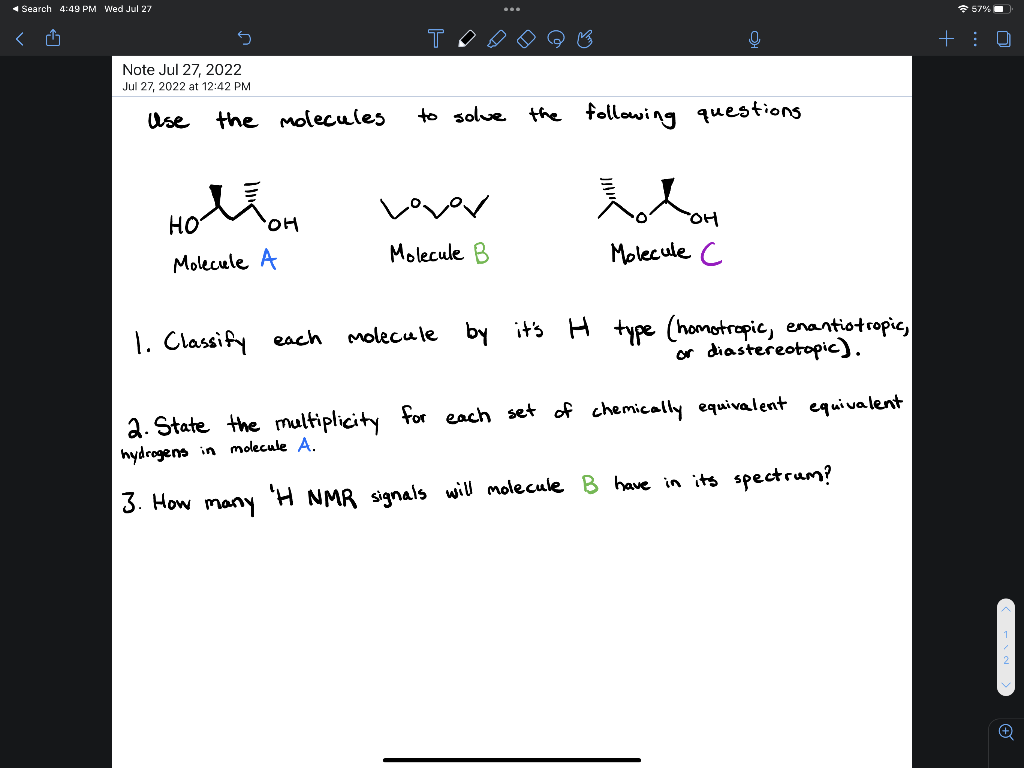 Search 4:49 PM Wed Jul 27
57%
Note Jul 27, 2022
Jul 27, 2022 at 12:42 PM
Use the molecules to solve the following questions
HO OH
Molecule A
O O
Molecule B
O OH
Molecule C
1. Classify each molecule by it's H type (homotropic, enantiotropic,
or diastereotopic).
2. State the multiplicity for each set of chemically equivalent equivalent
hydrogens in molecule A.
3. How many 'H NMR signals will molecule B have in its spectrum?
1
2